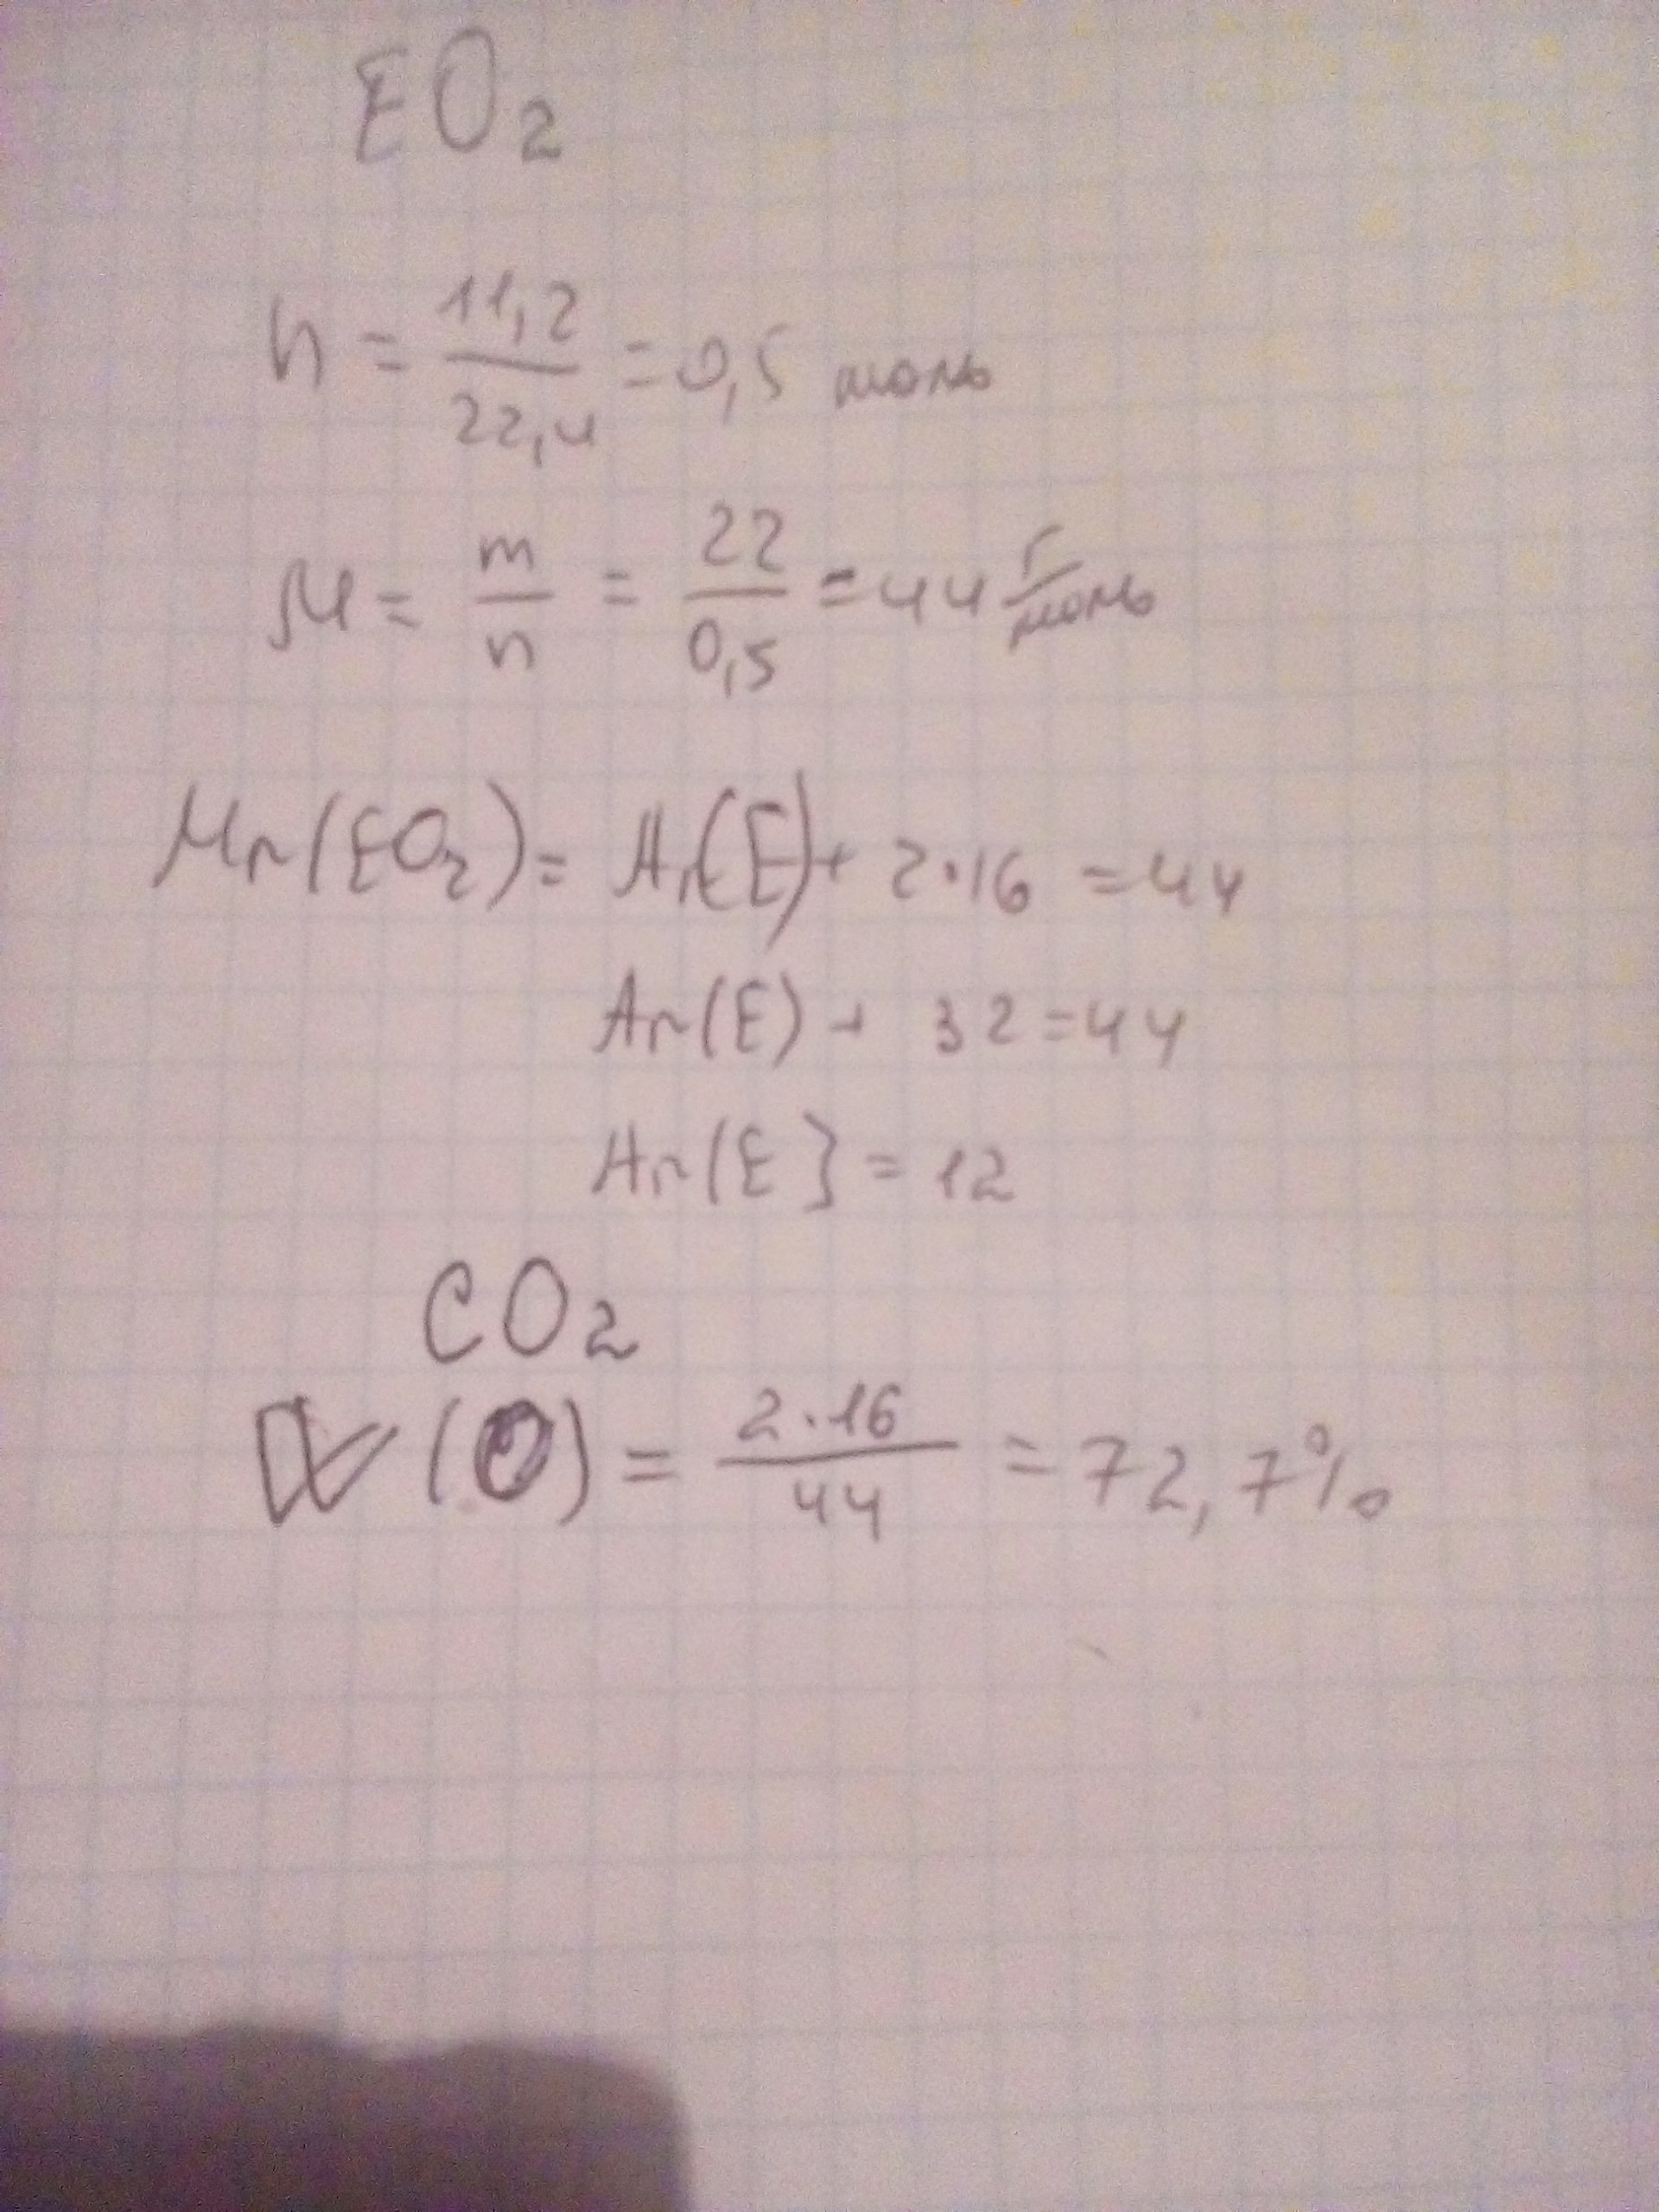 EO₂
n = 11,2/22,4 = 0,5 моль
M = m/n = 22/0,5 = 44 г/моль
Mr(EO₂) = Ar(E) + 2·16 = 44
Ar(E) + 32 = 44
Ar(E} = 12
CO₂
W(O) = 2·16/44 = 72,7%